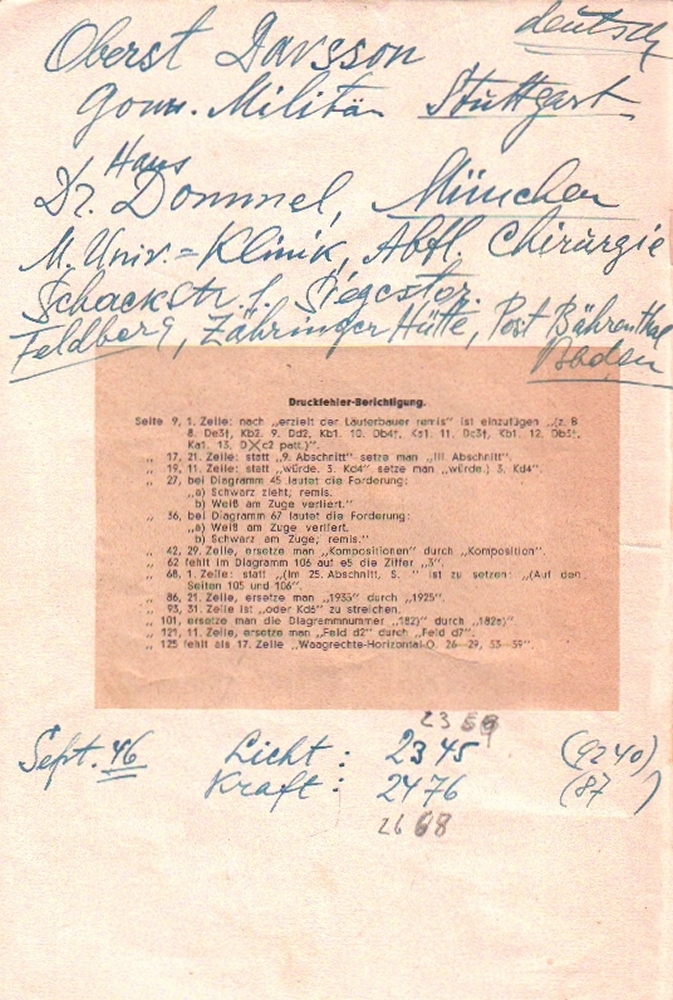 deutsch
Oberst Davsson
Gouv. Militär Stuttgart
Hans
Dr. Dommel, München
M. Univ.=Klinik, Abtl. Chirurgie
Schackstr. 1. Siegestor.
Feldberg, Zähringer Hütte, Post Bährenthal
Baden
Druckfehler-Berichtigung.
Seite 9, 1. Zeile: nach „erzielt der Läuferbauer remis“ ist einzufügen „(z. B
8. De3†, Kb2. 9. Dd2, Kb1. 10. Db4†, Ka1. 11. Dc3†, Kb1. 12. Db3†,
Ka1. 13. D×c2 patt.)“.
„ 17, 21. Zeile: statt „9. Abschnitt“ setze man „III. Abschnitt“.
„ 19, 11. Zeile: statt „würde. 3. Kd4“ setze man „würde.) 3. Kd4“.
„ 27, bei Diagramm 45 lautet die Forderung:
„a) Schwarz zieht; remis.
b) Weiß am Zuge verliert.“
„ 36, bei Diagramm 67 lautet die Forderung:
„a) Weiß am Zuge verliert.
b) Schwarz am Zuge; remis.“
„ 42, 29. Zeile, ersetze man „Kompositionen“ durch „Komposition“.
„ 62 fehlt im Diagramm 106 auf e5 die Ziffer „3“.
„ 68, 1. Zeile: statt „(Im 25. Abschnitt, S. “ ist zu setzen: „(Auf den
Seiten 105 und 106“.
„ 86, 21. Zeile, ersetze man „1935“ durch „1925“.
„ 93, 31. Zeile ist „oder Kd6“ zu streichen.
„ 101, ersetze man die Diagrammnummer „182)“ durch „182a)“.
„ 121, 11. Zeile, ersetze man „Feld d2“ durch „Feld d7“.
„ 125 fehlt als 17. Zeile „Waagrechte-Horizontal-O. 26—29, 53—59“.
Sept. 46 Licht: 2345 (9240)
Kraft: 2476 (87 )
2668